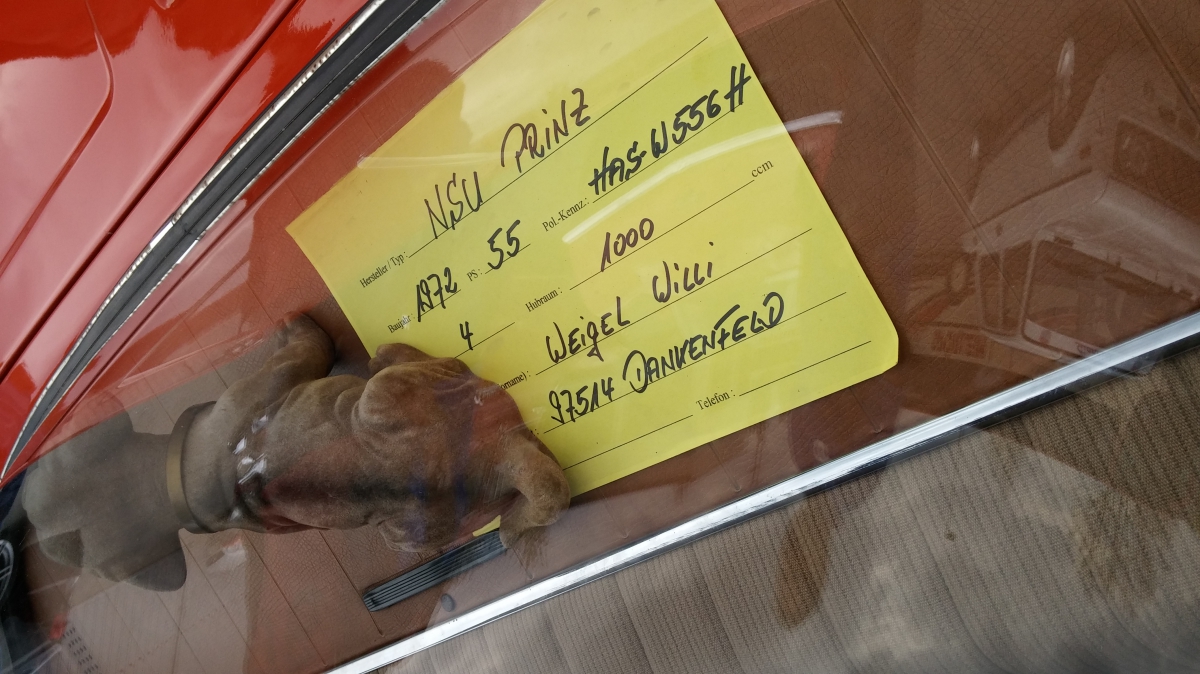 Hersteller / Typ : NSU PRINZ
Baujahr: 1972 PS: 55 Pol.-Kennz.: HAS-W556H
4 Hubraum : 1000 ccm
WEigEL WiLLi
97514 DANKENFELD
Telefon :